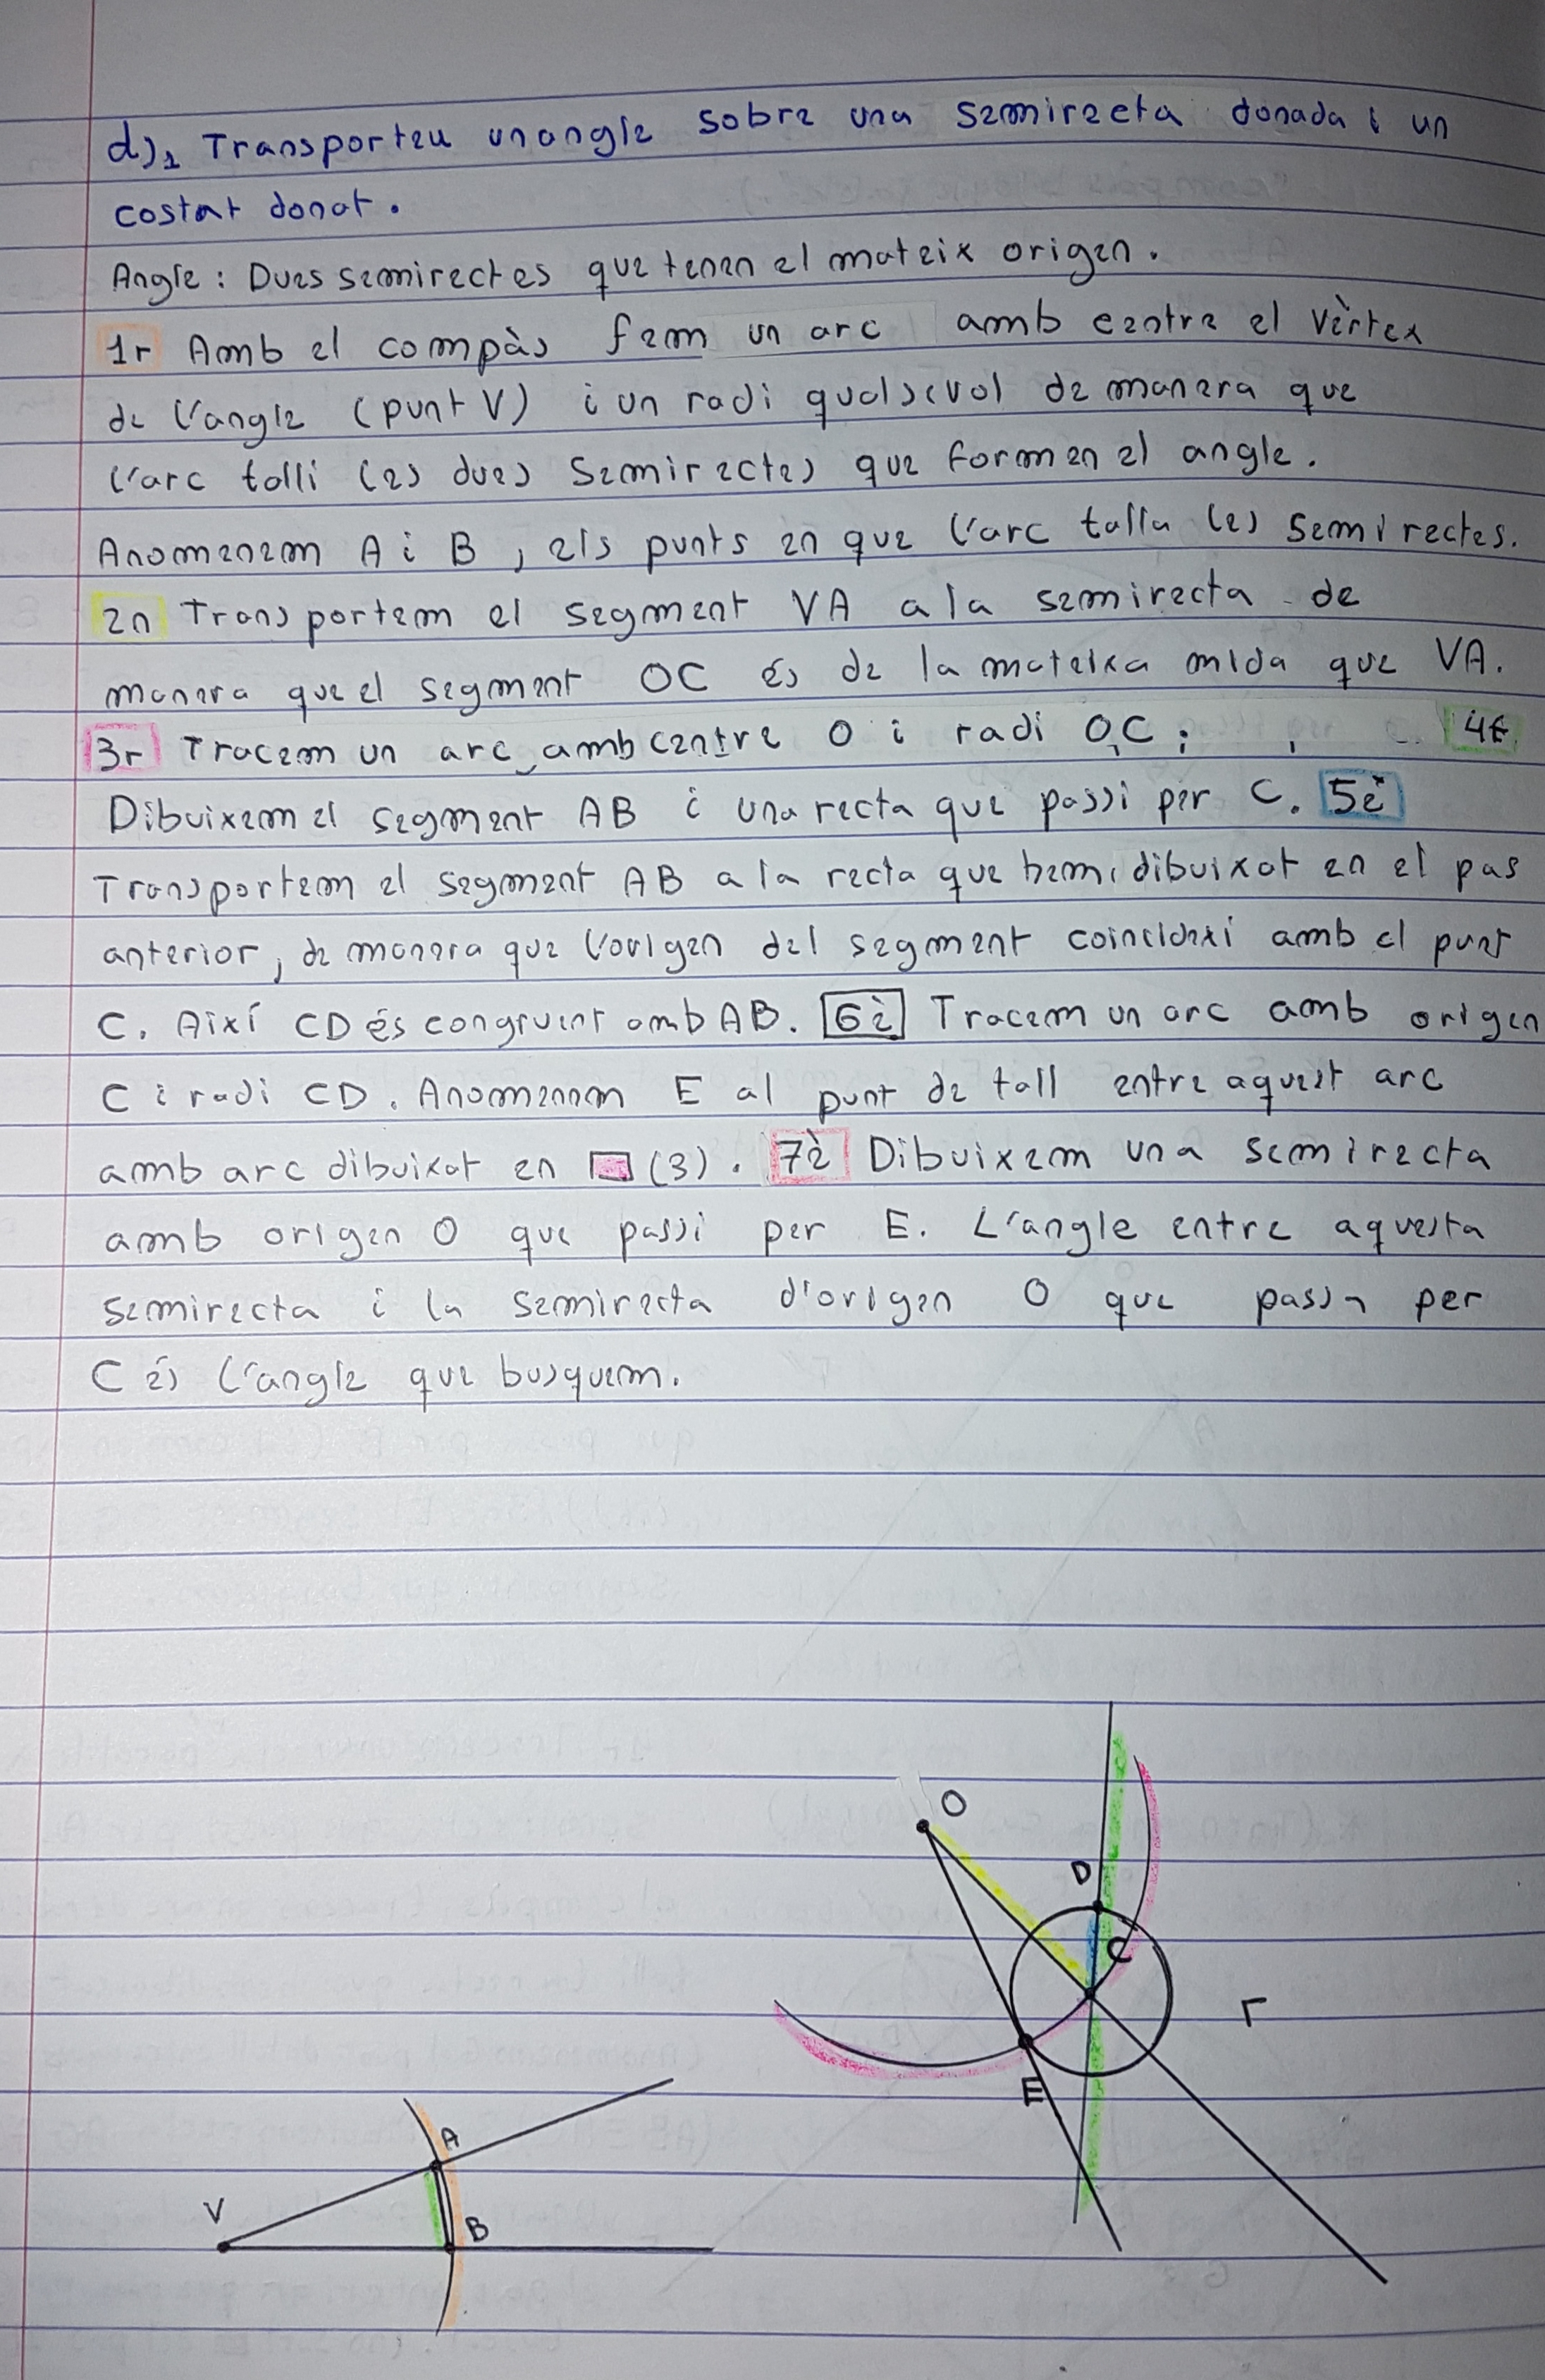 d)₁ Transporteu un angle sobre una semirecta donada i un
costat donat.
Angle: Dues semirectes que tenen el mateix origen.
1r Amb el compàs fem un arc amb centre el vèrtex
de l'angle (punt V) i un radi qualsevol de manera que
l'arc talli les dues semirectes que formen el angle.
Anomenem A i B, els punts en que l'arc talla les semirectes.
2n Transportem el segment VA a la semirecta de
manera que el segment OC és de la mateixa mida que VA.
3r Tracem un arc amb centre O i radi OC; 4t
Dibuixem el segment AB i una recta que passi per C. 5è
Transportem el segment AB a la recta que hem dibuixat en el pas
anterior, de manera que l'origen del segment coincideixi amb el punt
C. Així CD és congruent amb AB. 6è Tracem un arc amb origen
C i radi CD. Anomenem E al punt de tall entre aquest arc
amb arc dibuixat en (3). 7è Dibuixem una semirecta
amb origen O que passi per E. L'angle entre aquesta
semirecta i la semirecta d'origen O que passa per
C és l'angle que busquem.
O
D
C
r
E
A
V
B